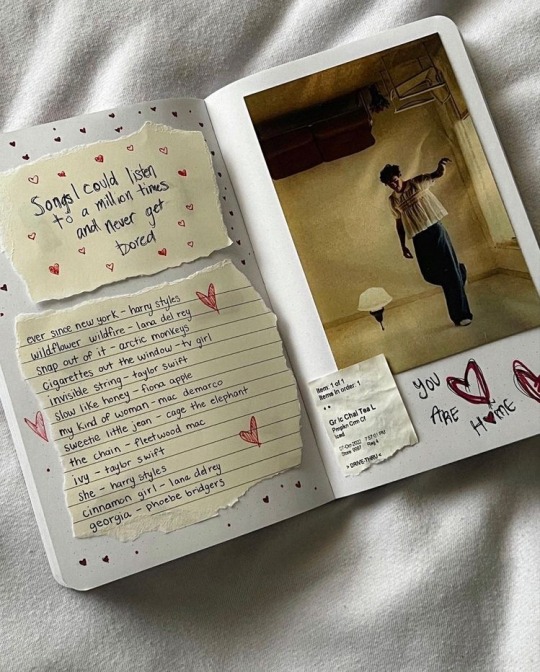 Songs I could listen
to a million times
and never get
bored
ever since new york - harry styles
wildflower wildfire - lana del rey
snap out of it - arctic monkeys
Cigarettes out the window - tv girl
invisible string - taylor swift
slow like honey - fiona apple
my kind of woman - mac demarco
sweetie little jean - cage the elephant
the chain - fleetwood mac
ivy - taylor swift
she - harry styles
cinnamon girl - lana del rey
georgia - phoebe bridgers
Item: 1 of 1
Items in order: 1
Gr Ic Chai Tea L
Pumpkin Crm Cf
Iced
> DRIVE-THRU <
YOU
ARE HOME